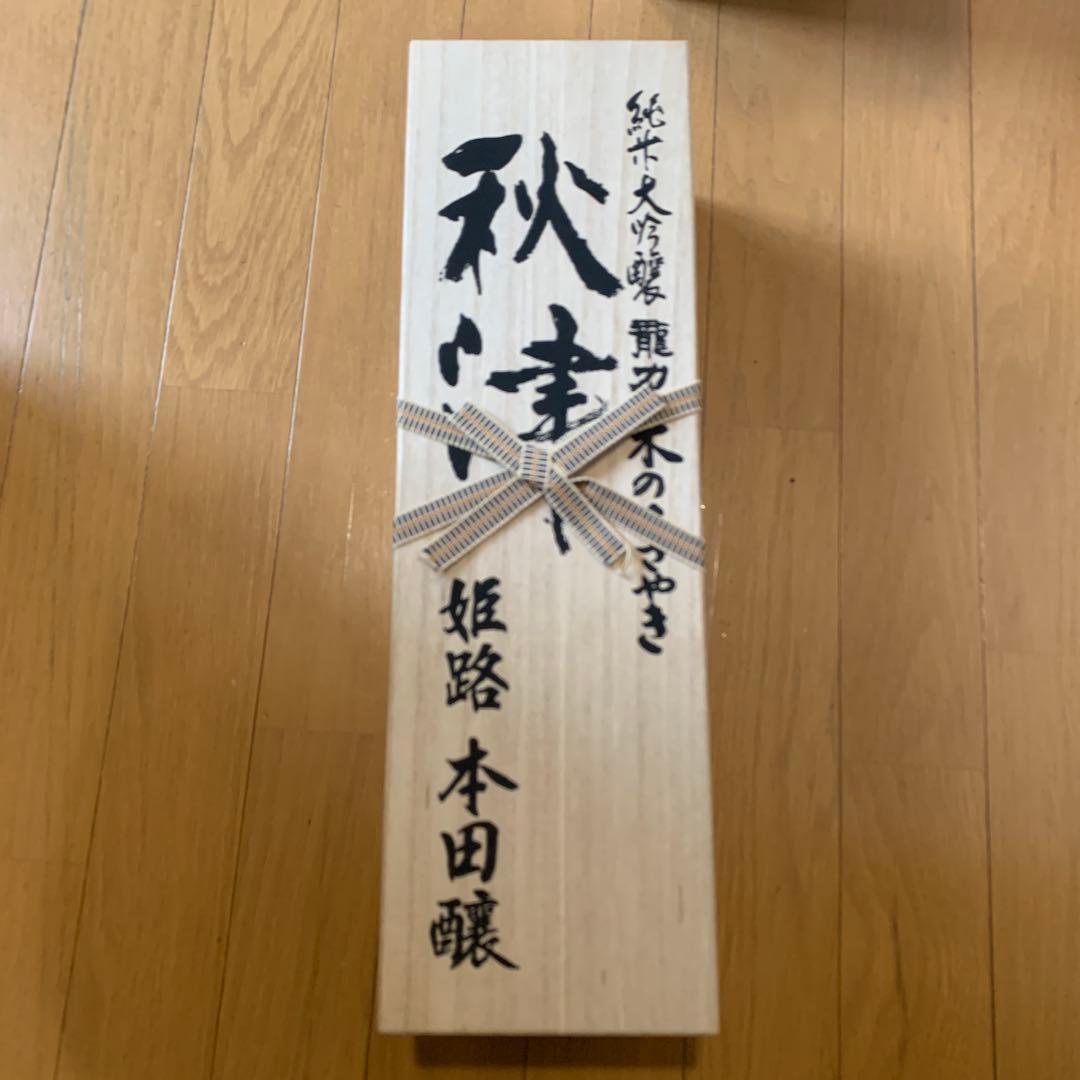 純米大吟醸 龍力 米のささやき
秋津
姫路 本田醸